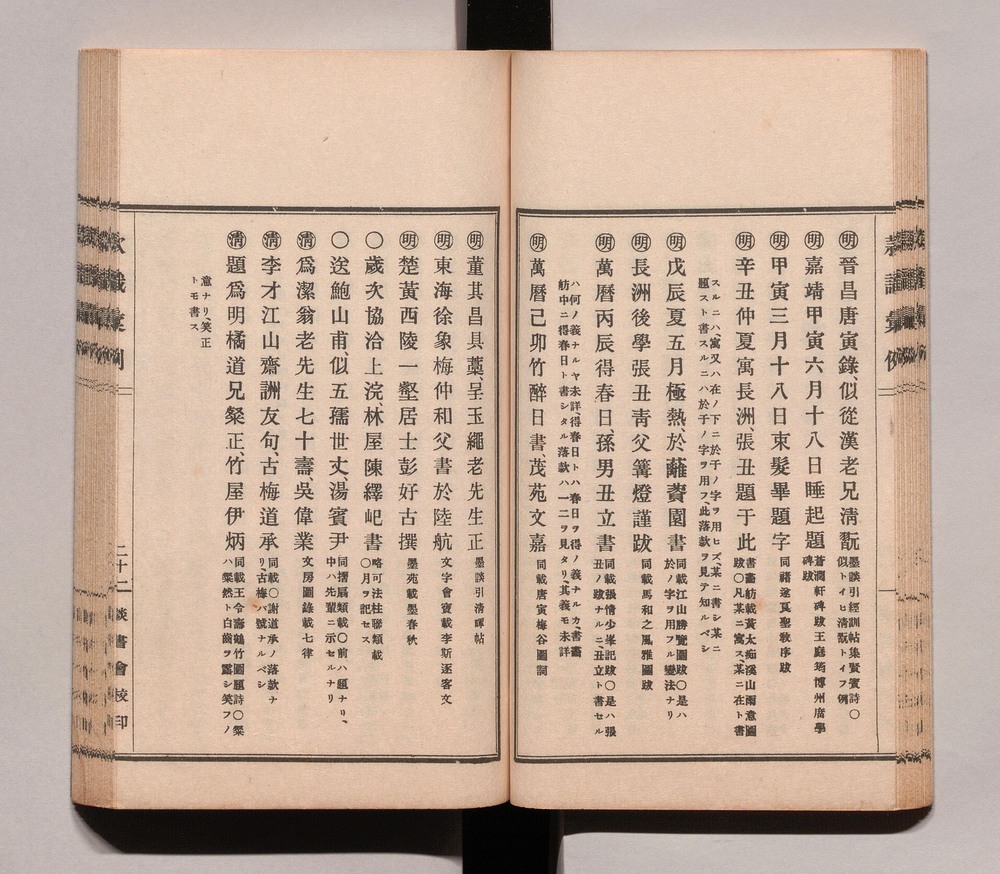 ㊔晉昌唐寅錄、似從漢老兄淸翫 墨談引經訓帖集賢賓詩〇
似トイヒ淸翫トイフ例
㊔嘉靖甲寅六月十八日睡起題 蒼潤軒碑跋王庭筠博州廣學
碑跋
㊔甲寅三月十八日束髮畢題字 同褚遂良聖敎序跋
㊔辛丑仲夏寓長洲、張丑題于此 書畵舫載黃太痴溪山雨意圖
跋〇凡某ニ寓ス某ニ在ト書
スルニハ、寓又ハ在ノ下ニ於于ノ字ヲ用ヒズ、某ニ書シ某ニ
題スト書スルニハ於于ノ字ヲ用フ、此落款ヲ見テ知ルベシ
㊔戊辰夏五月極熱、於蘿薋園書 同載江山勝覽圖跋〇是ハ
於ノ字ヲ用フル變法ナリ
㊔長洲後學張丑靑父篝燈謹跋 同載馬和之風雅圖跋
㊔萬曆丙辰得春日、孫男丑立書 同載張情少峯記跋〇是ハ張
丑ノ跋ナルニ、丑立ト書セル
ハ何ノ義ナルヤ未詳、得春日トハ春日ヲ得ノ義ナルカ、書畵
舫中ニ得春日ト書シタル落款ハ一二ヲ見タリ、其義モ未詳
㊔萬曆己卯竹醉日書、茂苑文嘉 同載唐寅梅谷圖詞
㊔董其昌具藁、呈玉繩老先生正 墨談引淸暉帖
㊔東海徐象梅仲和父書於陸航 文字會寶載李斯逐客文
㊔楚黃西陵一壑居士彭好古撰 墨苑載墨春秋
〇歲次協洽上浣、林屋陳繹屺書 略可法柱聯類載
〇月ヲ記セス
〇送鮑山甫、似五孺世丈、湯賓尹 同摺扇類載〇前ハ題ナリ、
中ハ先輩ニ示セルナリ
㊔爲潔翁老先生七十壽、吳偉業 文房圖錄載七律
㊔李才江山齋詶友句、古梅道承 同載〇謝道承ノ落款ナ
リ、古梅バ號ナルベシ
㊔題爲明橘道兄粲正、竹屋伊炳 同載王令壽鶴竹圖題詩〇粲
ハ粲然ト白齒ヲ露シ笑フノ
意ナリ、笑正
トモ書ス
二十二
談書會校印